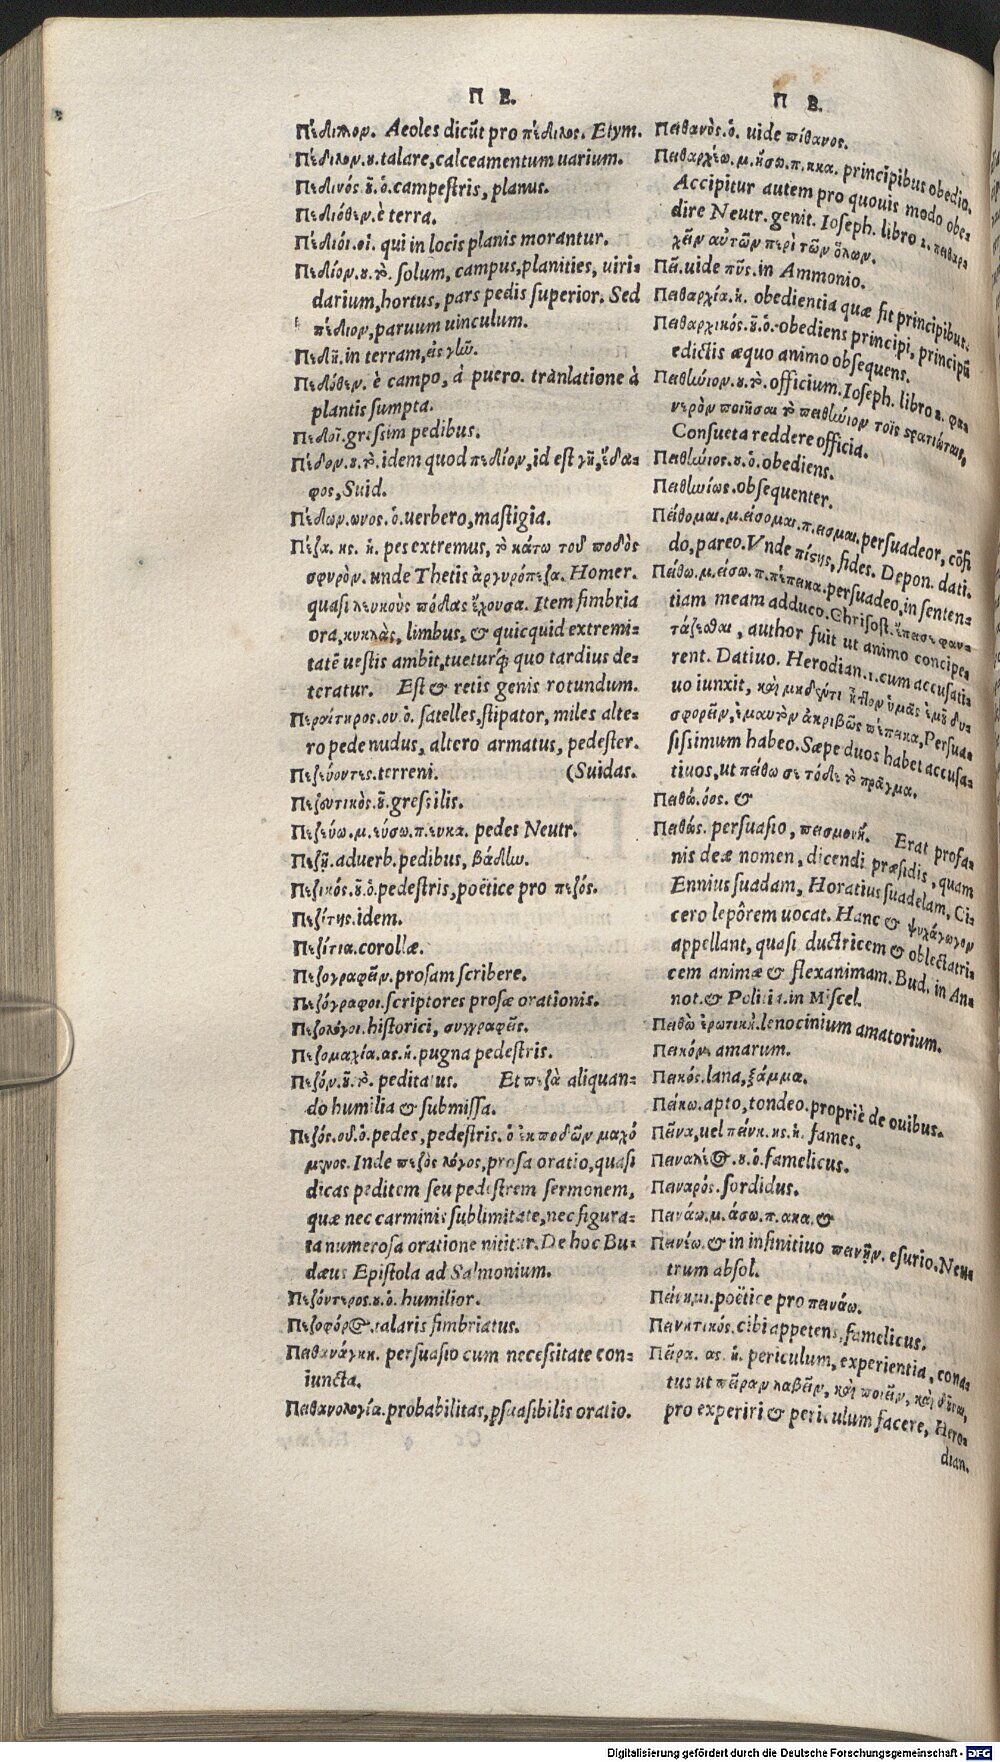 Π Ε.
Πέδιλλον. Aeoles dicũt pro πέδιλος. Etym.
Πέδιλον.ȣ.talare,calceamentum uarium.
Πεδινός.ȣ͂.ὁ.campestris, planus.
Πεδιόθεν.è terra.
Πέδιόι.οἱ. qui in locis planis morantur.
Πεδίον.ȣ.τὸ. solum, campus,planities, uiri-
darium,hortus, pars pedis superior. Sed
πέδιον,paruum uinculum.
Πεδῆ.in terram,εἰς γλῶ.
Πεδόθεν. è campo, à puero. trànlatione à
plantis sumpta.
Πεδοῖ.gressim pedibus.
Πέδον.ȣ.τὸ.idem quod πεδίον,id est γῆ,ἔδα-
φος,Suid.
Πέδων.ωνος.ὁ.uerbero,mastigia.
Πέζα. ης. ἡ. pes extremus, τὸ κάτω τοῦ ποδὸς
σφυρὸν. unde Thetis ἀργυρόπεζα. Homer.
quasi λευκοὺς πόδας ἔχουσα. Item fimbria
ora,κυκλὰς, limbus, & quicquid extremi-
tatē uestis ambit,tueturq́; quo tardius de-
teratur. Est & retis genis rotundum.
Πεζαίτηρος.ου ὁ. satelles,stipator, miles alte-
ro pede nudus, altero armatus, pedester.
Πεζεύοντες.terreni. (Suidas.
Πεζευτικὸς.ȣ͂.gressilis.
Πεζεύω.μ.εύσω.π.ευκα. pedes Neutr.
Πεζῇ.aduerb.pedibus, βάδλω.
Πεζικός.ȣ͂.ὁ.pedestris,poëtice pro πεζός.
Πεζίτης.idem.
Πεζίτια.corollæ.
Πεζογραφεῖν.prosam scribere.
Πεζόγραφοι.scriptores prosæ orationis.
Πεζολόγοι.historici, συγγραφεῖς.
Πεζομαχία.ας.ἡ.pugna pedestris.
Πεζόν.ȣ͂.τὸ. peditatus. Et πεζὰ aliquan-
do humilia & submissa.
Πεζός.οῦ.ὁ.pedes,pedestris. ὁ ἐκ ποδῶν μαχό
μενος. Inde πεζὸς λόγος,prosa oratio,quasi
dicas peditem seu pedestrem sermonem,
quæ nec carminis sublimitate,nec figura-
ta numerosa oratione nititur. De hoc Bu-
dæus Epistola ad Salmonium.
Πεζόντερος.ȣ.ὁ. humilior.
Πεζοφόρος.talaris fimbriatus.
Πειθανάγκη. persuasio cum necessitate con-
iuncta.
Πειθανολογία.probabilitas,psuasibilis oratio.
Π Ε.
Πειθανὸς.ὁ. uide πίθανος.
Πειθαρχέω.μ.ήσω.π.ηκα. principibus obedio.
Accipitur autem pro quouis modo obe-
dire Neutr. genit. Ioseph. libro 2. πειθαρ-
χεῖν αὐτῶν περὶ τῶν ὅλων.
Πεῖ.uide πῦς.in Ammonio.
Πειθαρχία.ἡ. obedientia quæ fit principibus.
Πειθαρχικός.ȣ͂.ὁ.obediens principi, principũ
edictis æquo animo obsequens.
Πειθήνιον.ȣ.τὸ.officium.Ioseph. libro 2. φα-
νερὸν ποιῆσαι τὸ πειθήνιον τοῖς στρατιώταις,
Consueta reddere officia.
Πειθήνιος.ȣ.ὁ.obediens.
Πειθηνίως.obsequenter.
Πείθομαι.μ.είσομαι.π.εισμαι.persuadeor, cõfi
do,pareo.Vnde πίστις, fides. Depon. dati.
Πείθω.μ.είσω.π.πέπεικα.persuadeo,in senten-
tiam meam adduco.Chrisost. ἔπεισε φαν-
τάζεσθαι, author fuit ut animo concipe-
rent. Datiuo. Herodian.1.cum accusati-
uo iunxit, καὶ μηδέντι ἧττον ὑμᾶς ἐμοῦ δυ-
σφορεῖν,ἐμαυτὸν ἀκριβῶς πέπεικα,Persua-
sissimum habeo. Sæpe duos habet accusa-
tiuos,ut πείθω σε τόδε τὸ πρᾶγμα.
Πειθώ.όος. &
Πειθώς. persuasio, πεισμονή. Erat profa-
nis deæ nomen, dicendi præsidis, quam
Ennius suadam, Horatius suadelam, Ci-
cero lepôrem uocat. Hanc & ψυχάγωγον
appellant, quasi ductricem & oblectatri-
cem animæ & flexanimam. Bud. in An-
not. & Politia.in Miscel.
Πειθὼ ἐρωτική.lenocinium amatorium.
Πεικόν. amarum.
Πεικός.lana,ξάμμα.
Πείκω.apto,tondeo.propriè de ouibus.
Πεῖνα,uel πείνη.ης.ἡ. fames.
Πειναλέος.ȣ.ὁ.famelicus.
Πειναρός.sordidus.
Πεινάω.μ.άσω.π.ακα.&
Πεινέω.& in infinitiuo πεινῆν. esurio.Neu-
trum absol.
Πείνημι.poëtice pro πεινάω.
Πεινητικός.cibi appetens,famelicus.
Πεῖρα. ας. ἡ. periculum, experientia, cona-
tus ut πεῖραν λαβεῖν, καὶ ποιεῖν, καὶ δοῦναι,
pro experiri & periculum facere, Hero-
dian.
Digitalisierung gefördert durch die Deutsche Forschungsgemeinschaft - DFG